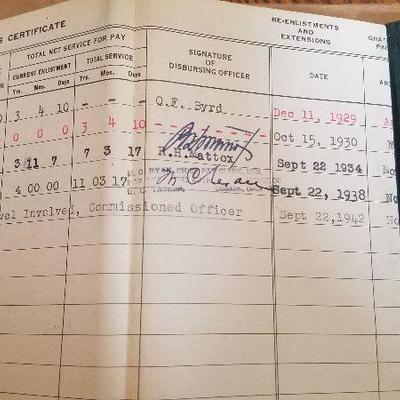 S CERTIFICATE
RE-ENLISTMENTS
AND
EXTENSIONS
TOTAL NET SERVICE FOR PAY
CURRENT ENLISTMENT TOTAL SERVICE
Yrs. Mos. Days Yrs. Mos. Days
SIGNATURE
OF
DISBURSING OFFICER
DATE
3 4 10 - - - O.F. Byrd Dec 11, 1929
0 0 0 3 4 10 Oct 15, 1930
3 11 7 7 3 17 R.H.Mattox Sept 22 1934 No
4 00 00 11 03 17 Sept 22, 1938 No
vel Involved, Commissioned Officer Sept 22, 1942 No